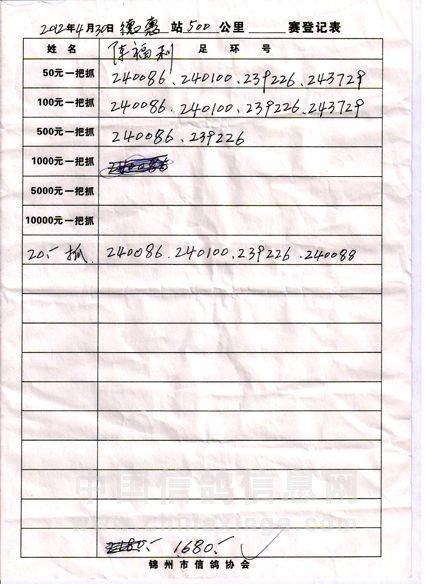 2012年4月30日 德惠 站 500 公里 赛登记表
姓名 陈福利 足环号
50元一把抓 240086.240100.239226.243729
100元一把抓 240086.240100.239226.243729
500元一把抓 240086.239226
1000元一把抓
5000元一把抓
10000元一把抓
20.- 抓 240086.240100.239226.240088
中国信鸽信息网
1680.-
锦州市信鸽协会